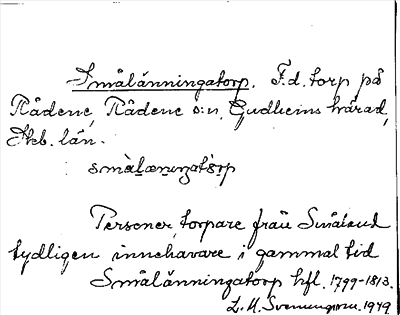 Smålänningatorp. F.d. torp på
Rådene, Rådene s:n, Gudhems härad,
Skb. län.
småläniŋatɔrp
Personer, torpare från Småland
tydligen innehavare i gammal tid
Smålänningatorp hfl. 1799-1813.
L. M. Svenungsson. 1949